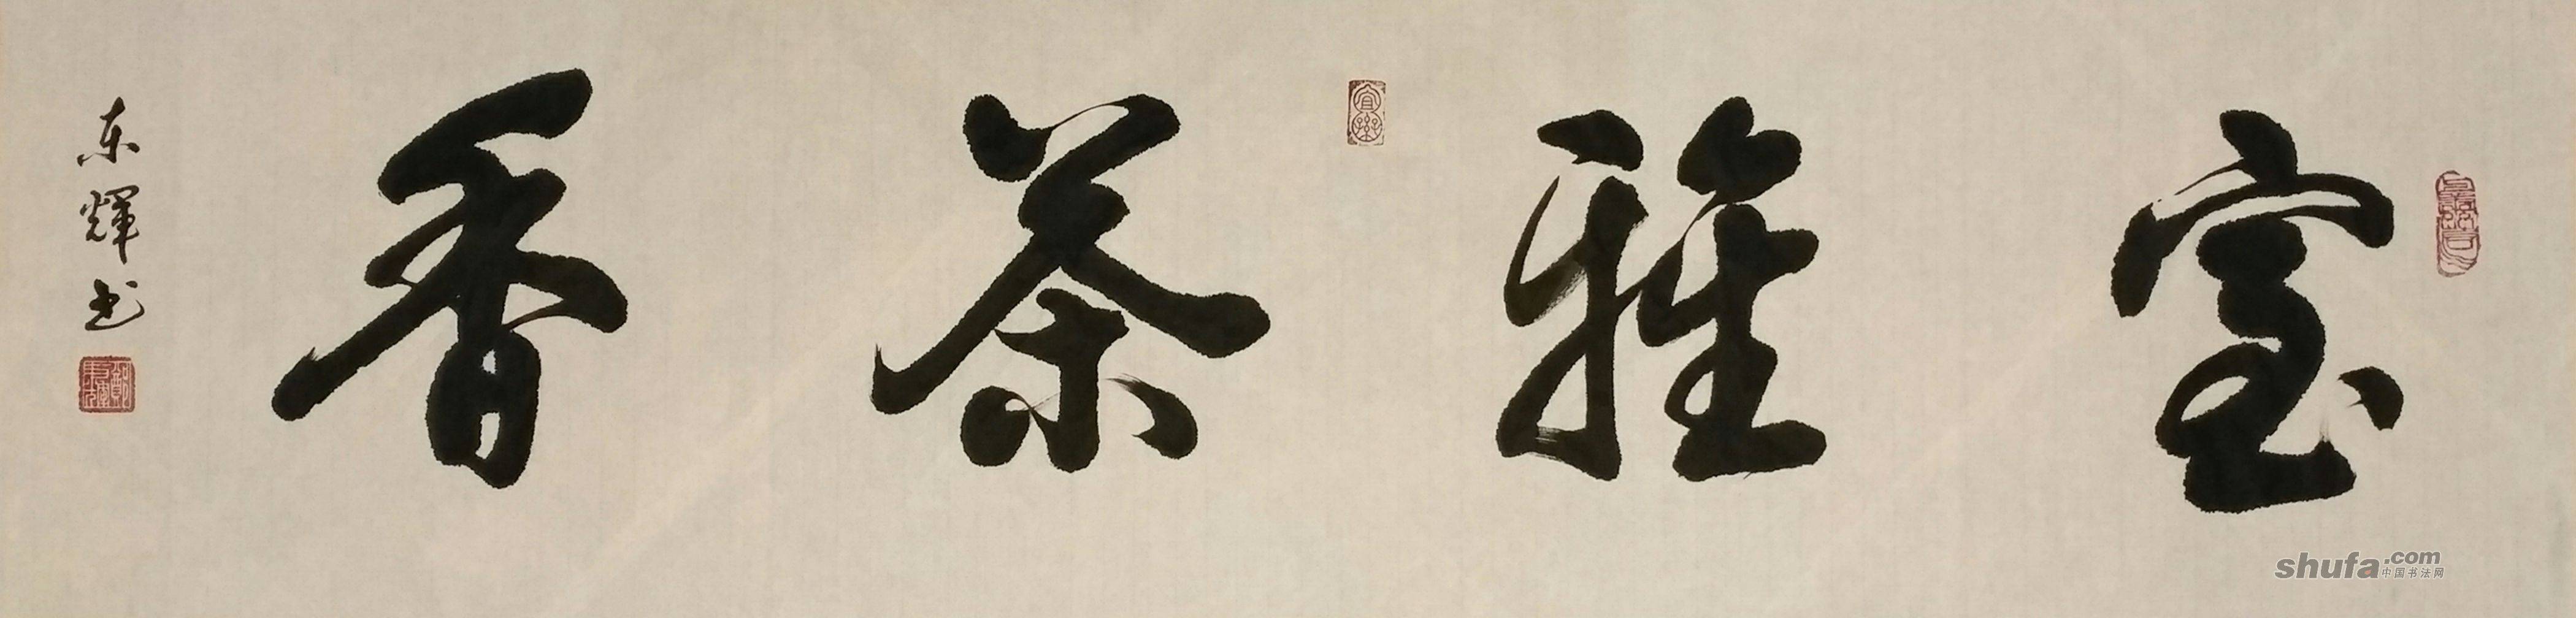 室雅茶香
东辉书
宜樂
shufa.com
中国书法网